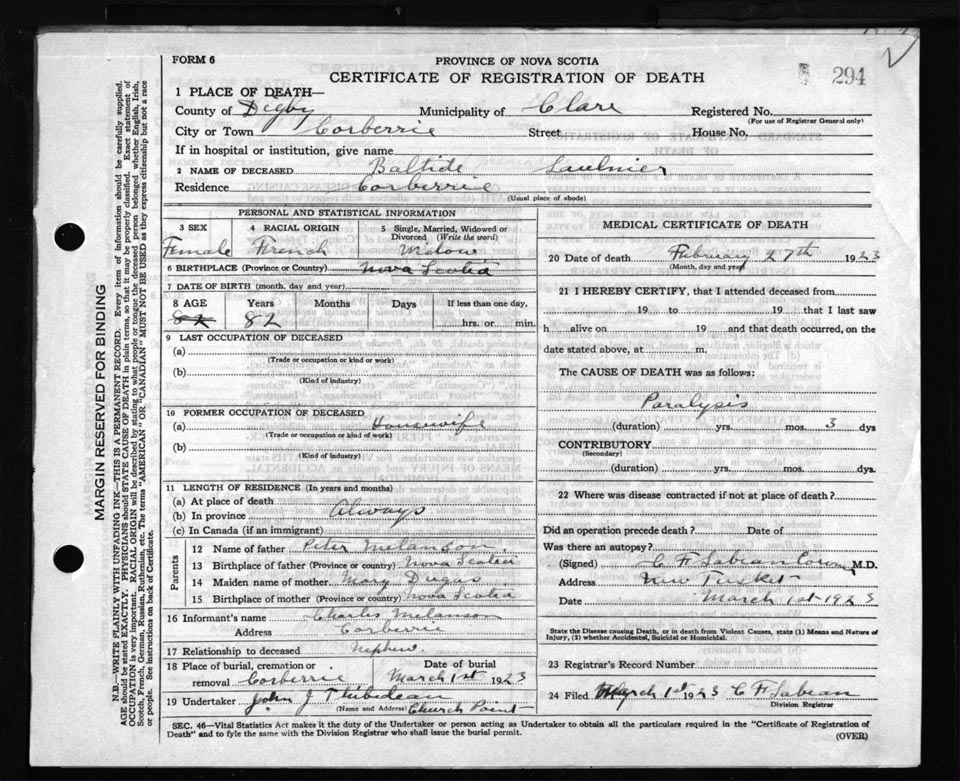 FORM 6
PROVINCE OF NOVA SCOTIA
CERTIFICATE OF REGISTRATION OF DEATH
294
1 PLACE OF DEATH—
County of Digby Municipality of Clare Registered No.
(For use of Registrar General only)
City or Town Corberrie Street House No.
If in hospital or institution, give name
2 NAME OF DECEASED Baltide Saulnier
Residence Corberrie
(Usual place of abode)
PERSONAL AND STATISTICAL INFORMATION
3 SEX 4 RACIAL ORIGIN 5 Single, Married, Widowed or Divorced (Write the word)
Female French Widow
6 BIRTHPLACE (Province or Country) Nova Scotia
7 DATE OF BIRTH (month, day, and year)
8 AGE Years Months Days If less than one day,
82 hrs. or min.
9 LAST OCCUPATION OF DECEASED
(a)
(Trade or occupation or kind or work)
(b)
(Kind of industry)
10 FORMER OCCUPATION OF DECEASED
(a) Housewife
(Trade or occupation or kind of work)
(b)
(Kind of industry)
11 LENGTH OF RESIDENCE (In years and months)
(a) At place of death
(b) In province Always
(c) In Canada (if an immigrant)
Parents
12 Name of father Peter Melanson
13 Birthplace of father (Province or country) Nova Scotia
14 Maiden name of mother Mary Dugas
15 Birthplace of mother (Province or country) Nova Scotia
16 Informant's name Charles Melanson
Address Corberrie
17 Relationship to deceased Nephew
18 Place of burial, cremation or removal Corberrie Date of burial March 1st 1923
19 Undertaker John J Thibideau
(Name and Address) Church Point
MEDICAL CERTIFICATE OF DEATH
20 Date of death February 27th 1923
(Month, day and year)
21 I HEREBY CERTIFY, that I attended deceased from
19 to 19 that I last saw
h alive on 19 and that death occurred, on the
date stated above, at m.
The CAUSE OF DEATH was as follows:
Paralysis
(duration) yrs. mos. 3 dys
CONTRIBUTORY
(Secondary)
(duration) yrs. mos. dys.
22 Where was disease contracted if not at place of death?
Did an operation precede death? Date of
Was there an autopsy?
(Signed) C F Sabean M.D.
Address New Tusket
Date March 1st 1923
State the Disease causing Death, or in death from Violent Causes, state (1) Means and Nature of
Injury, (2) whether Accidental, Suicidal or Homicidal.
23 Registrar's Record Number
24 Filed March 1st 1923 C F Sabean
Division Registrar
SEC. 46—Vital Statistics Act makes it the duty of the Undertaker or person acting as Undertaker to obtain all the particulars required in the "Certificate of Registration of
Death" and to fyle the same with the Division Registrar who shall issue the burial permit.
(OVER)
MARGIN RESERVED FOR BINDING
N.B.—WRITE PLAINLY WITH UNFADING INK—THIS IS A PERMANENT RECORD. Every item of information should be carefully supplied.
AGE should be stated EXACTLY. PHYSICIANS should STATE CAUSE OF DEATH in plain terms, so that it may be properly classified. Exact statement of
OCCUPATION is very important. RACIAL ORIGIN will be described by stating to what people or tongue the deceased person belonged whether English, Irish,
Scotch, French, German, Russian, Ruthenian, etc. The terms "AMERICAN" OR "CANADIAN" MUST NOT BE USED as they express citizenship but not a race
or people. See instructions on back of Certificate.